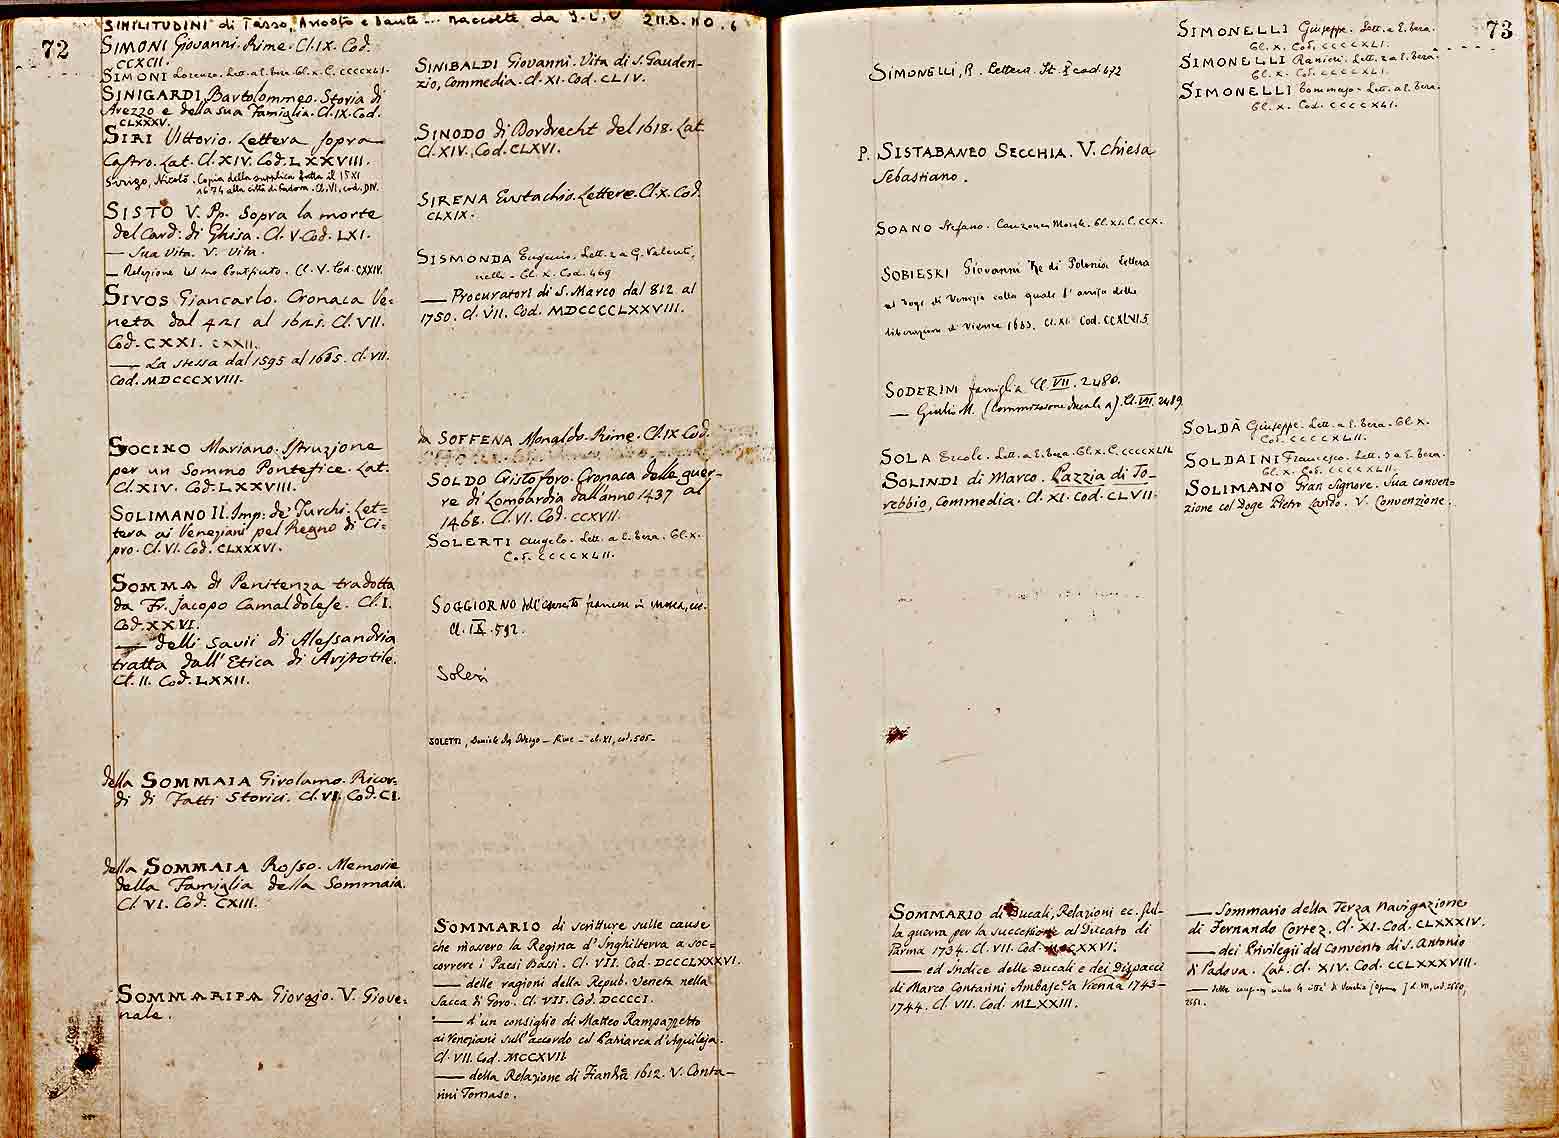 72
SIMILITUDINI di Tasso, Ariosto e Dante... raccolte da
SIMONI Giovanni. Rime. Cl. IX. Cod.
CCXCII.
SIMONI Lorenzo. Lett. a E. Beza. Cl. X. C. CCCCXLI.
SINIGARDI Bartolommeo. Storia di
Arezzo e della sua Famiglia. Cl. IX. Cod.
CLXXXV.
SIRI Vittorio. Lettera sopra
Castro. Lat. Cl. XIV. Cod. LXXVIII.
Nicolò. Copia della supplica fatta il
alla città di Padova. Cl. VI, cod. DIV.
SISTO V. Pp. Sopra la morte
del Card: di Ghisa. Cl. V. Cod. LXI.
— Sua Vita. V. Vita.
— Relazione del suo Pontificato. Cl. V. Cod. CXXIV.
SIVOS Giancarlo. Cronaca Ve=
neta dal 421 al 1621. Cl. VII.
Cod. CXXI. CXXII.
— La stessa dal 1595 al 1615. Cl. VII.
Cod. MDCCCXVIII.
SOCINO Mariano. Istruzione
per un Sommo Pontefice. Lat.
Cl. XIV. Cod. LXXVIII.
SOLIMANO II. Imp: de' Turchi. Let=
tera ai Veneziani pel Regno di Ci=
pro. Cl. VI. Cod. CLXXXVI.
SOMMA di Penitenza tradotta
da Fr. Jacopo Camaldolese. Cl. I.
Cod. XXVI.
— delli Savii di Alessandria
tratta dall'Etica di Aristotile.
Cl. II. Cod. LXXII.
della SOMMAIA Girolamo. Ricor=
di di Fatti Storici. Cl. VI. Cod. CI.
della SOMMAIA Rosso. Memorie
della Famiglia della Sommaia.
Cl. VI. Cod. CXIII.
SOMMARIPA Giorgio. V. Giove=
nale.
SINIBALDI Giovanni. Vita di S. Gauden-
zio, Commedia. Cl. XI. Cod. CLIV.
SINODO di Dordrecht del 1618. Lat.
Cl. XIV. Cod. CLXVI.
SIRENA Eustachio. Lettere. Cl. X. Cod.
CLXIX.
SISMONDA Eugenio. Lett. 2 a G. Valenti,
nelli - Cl. X. Cod. 469
— Procuratori di S. Marco dal 812 al
1750. Cl. VII. Cod. MDCCCCLXXVIII.
da SOFFENA Monaldo. Rime. Cl. IX Cod.
SOLDO Cristoforo. Cronaca delle guer-
re di Lombardia dall'anno 1437 al
1468. Cl. VI. Cod. CCXVII.
SOLERTI Angelo. Lett. a E. Beza. Cl. X.
Cod. CCCCXLII.
SOGGIORNO dell'esercito francese in Mosca, ec.
Cl. IX. 592.
Soleri
SOLETTI, Daniele Rime - cl. XI, cod. 505-
SOMMARIO di scritture sulle cause
che mossero la Regina d'Inghilterra a soc=
correre i Paesi Bassi. Cl. VII. Cod. DCCCLXXXVI.
— delle ragioni della Repub. Veneta nella
Sacca di Goro. Cl. VII. Cod. DCCCCI.
— d'un consiglio di Matteo Rampazzetto
ai Veneziani sull'accordo col Patriarca d'Aquileja.
Cl. VII. Cod. MCCXVII
— della Relazione di 1612. V. Conta-
rini Tomaso.
73
SIMONELLI, R. Lettera. It. X cod 472
P. SISTABANEO SECCHIA. V. Chiesa
Sebastiano.
SOANO Stefano. Canzone Morale. Cl. XI. C. CCX.
SOBIESKI Giovanni Re di Polonia. Lettera
al Doge di Venezia colla quale l'avvisa della
liberazione di Vienna 1683. Cl. XI. Cod. CCXLVI.5
SODERINI famiglia Cl. VII. 2480.
— Giulio M. (Commissione ducale a). Cl. VII. 2489
SOLA Ercole. Lett. a E. Beza. Cl. X. C. CCCCXLII.
SOLINDI di Marco. Pazzia di To-
rebbio, Commedia. Cl. XI. Cod. CLVII.
SOMMARIO di Ducali, Relazioni ec. sul-
la guerra per la successione al Ducato di
Parma 1734. Cl. VII. Cod.
— ed Indice delle Ducali e dei Dispacci
di Marco Contarini Ambasc.r a Vienna 1743-
1744. Cl. VII. Cod. MLXXIII.
SIMONELLI Giuseppe. Lett. a E. Beza.
Cl. X. Cod. CCCCXLI.
SIMONELLI Ranieri. Lett. 2 a E. Beza.
Cl. X. Cod. CCCCXLI.
SIMONELLI Tommaso. Lett. a E. Beza.
Cl. X. Cod. CCCCXLI.
SOLDÀ Giuseppe. Lett. a E. Beza. Cl. X.
Cod. CCCCXLII.
SOLDAINI Francesco. Lett. a E. Beza.
Cl. X. Cod. CCCCXLII.
SOLIMANO Gran Signore. Sua conven=
zione col Doge Pietro Lando. V. Convenzione.
— Sommario della Terza Navigazione
di Fernando Cortez. Cl. XI. Cod. CLXXXIV.
— dei Privilegii del Convento di S. Antonio
di Padova. Lat. Cl. XIV. Cod. CCLXXXVIII.
— delle la città di Venezia